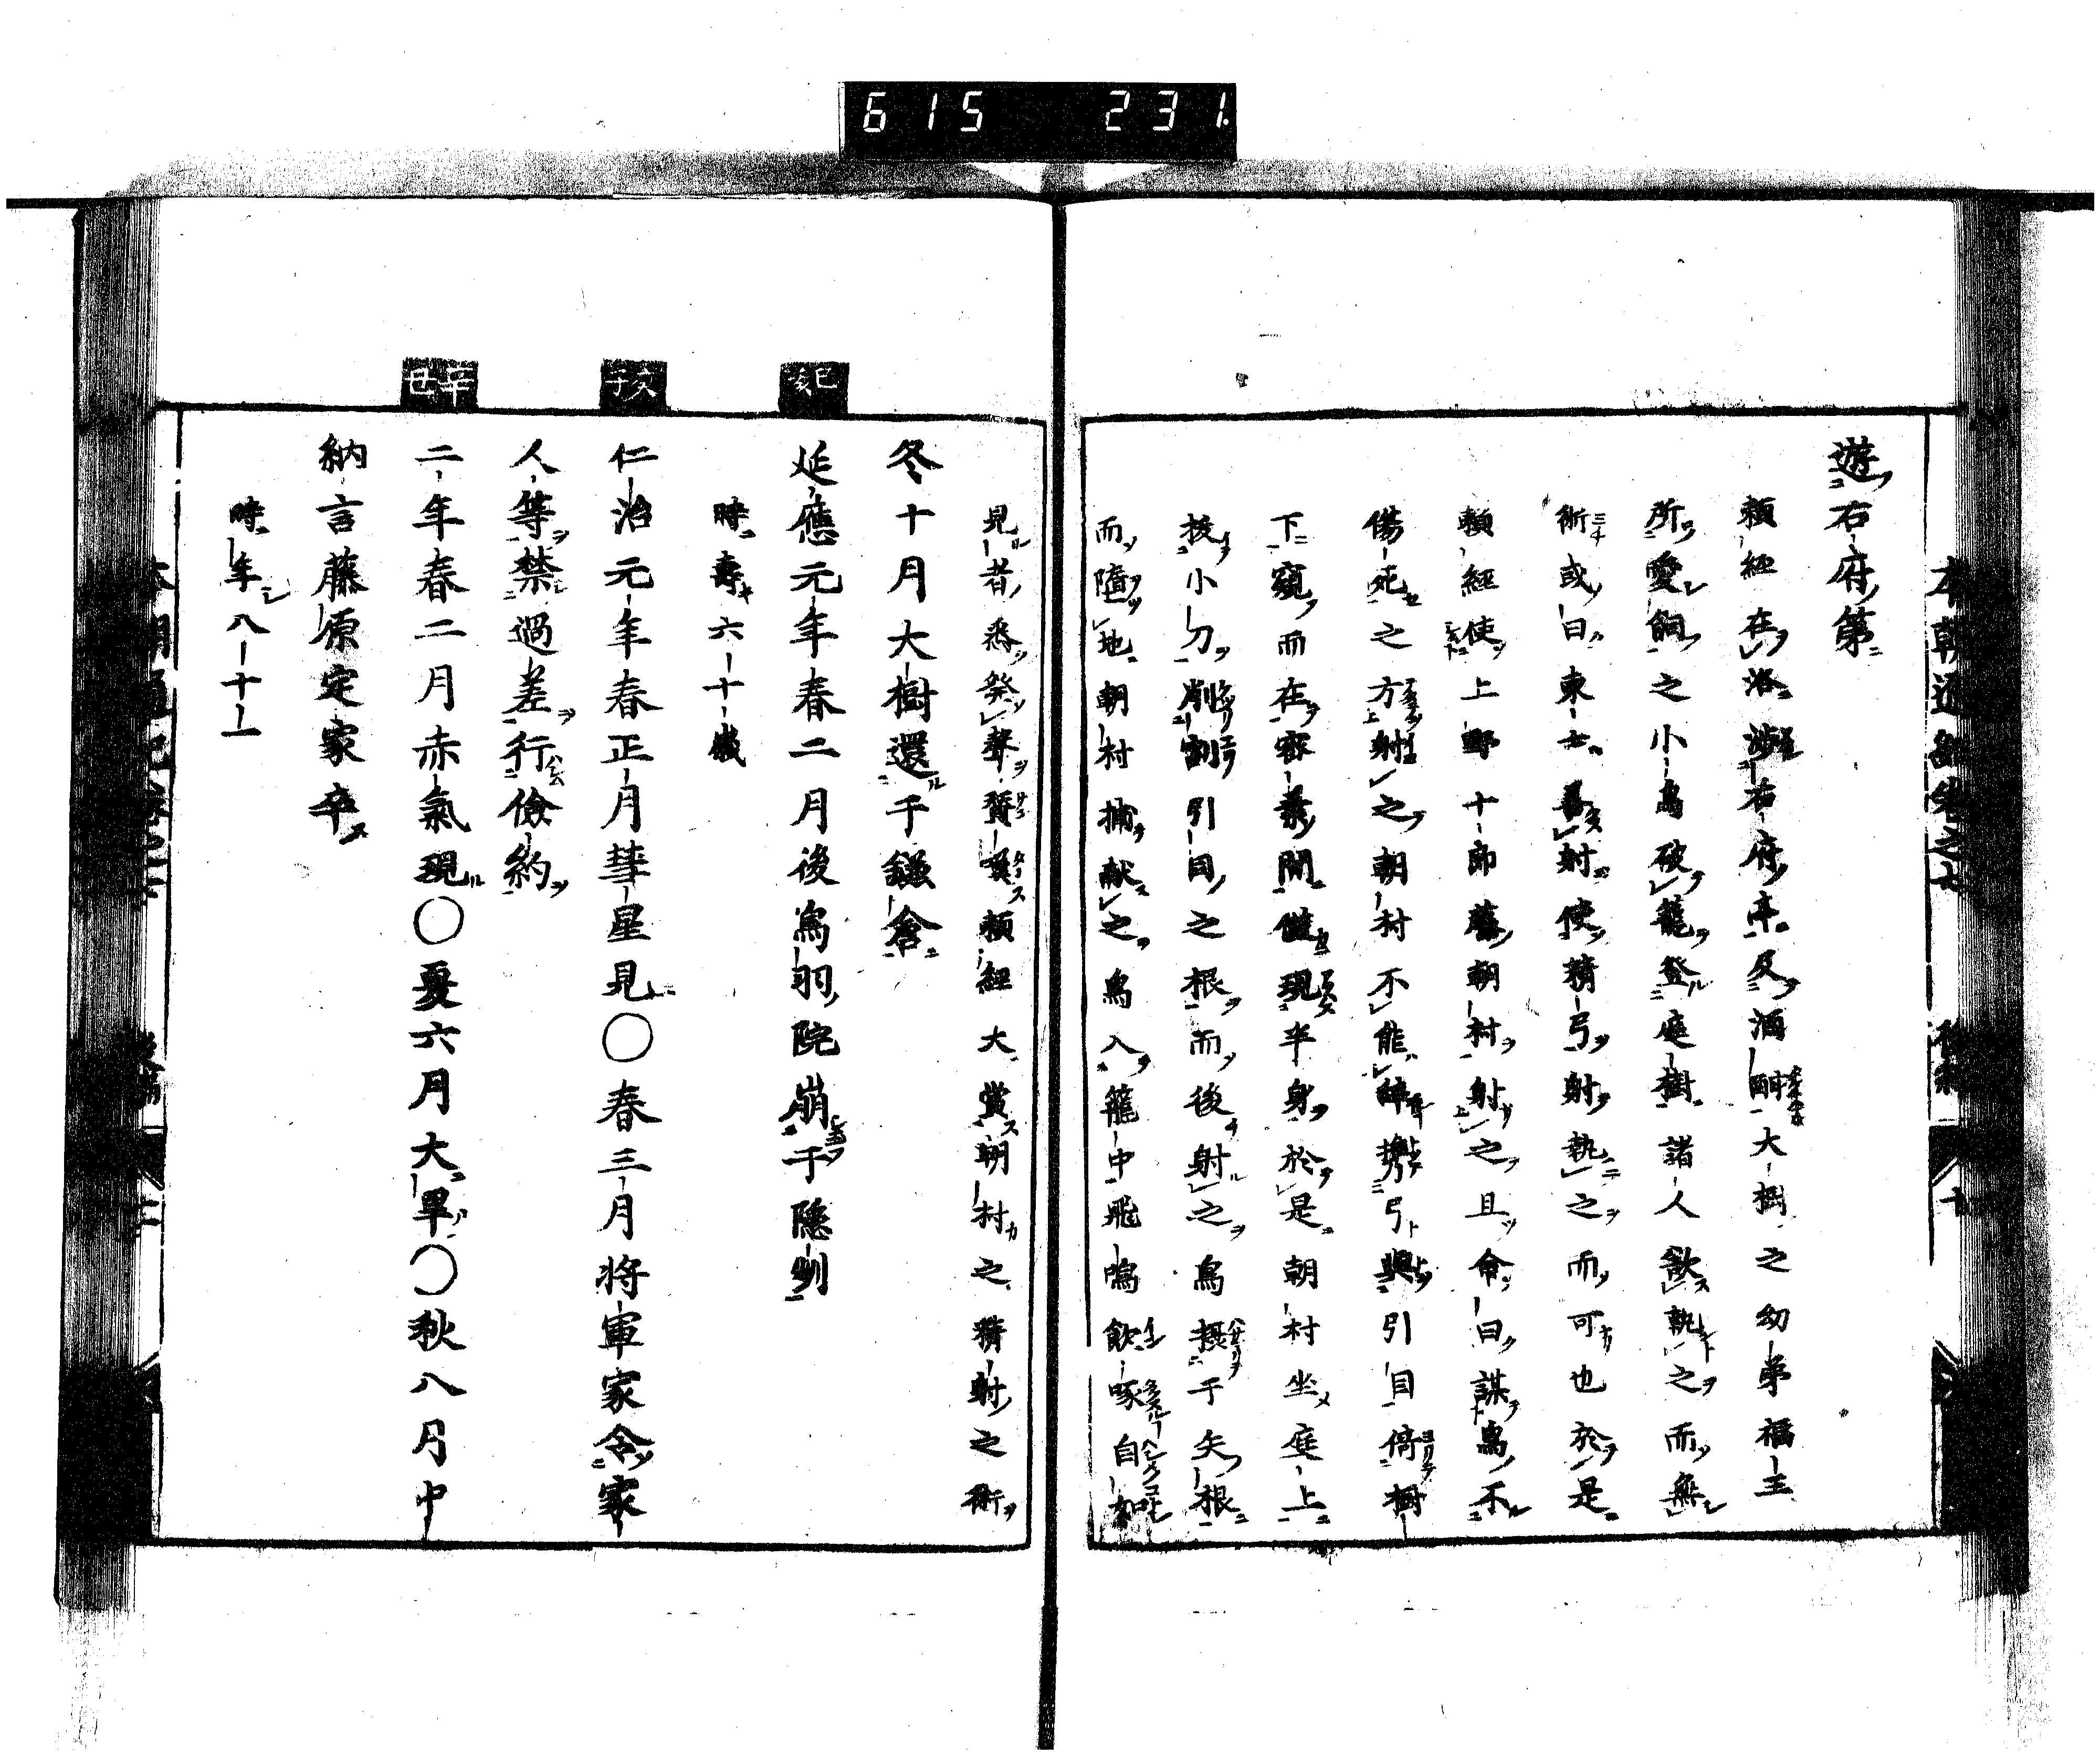 615 231.
本朝通紀卷之七
遊右府第
頼經在洛游右府亭及酒酣大樹之幼弟福王
所愛飼之小鳥破籠登庭樹諸人欲執之而無
術或曰東士善射使精弓射執之而可也於是
頼經使上野十郎藤朝村射之且命曰謀鳥不
傷死之方射之朝村不能辞携弓與引目倚樹
下窺而在密葉間僅現半身於是朝村坐庭上
拔小刀削割引目之根而後射之鳥挾于矢根
而墮地朝村捕献之鳥入籠中飛鳴飲啄自如
見者悉發聲賛美頼經大賞朝村之精射之術
冬十月大樹還于鎌倉
己亥
延應元年春二月後鳥羽院崩于隱刕
時壽六十歳
庚子
仁治元年春正月彗星見〇春三月将軍家令家
人等禁過差行儉約
辛丑
二年春二月赤氣現〇夏六月大旱〇秋八月中
納言藤原定家卒
時年八十一